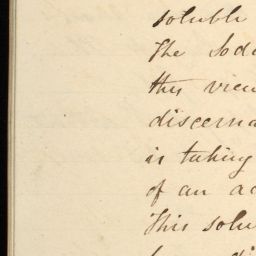 soluble
The Sod
this view
discerna
is taking
of an ac
This solu